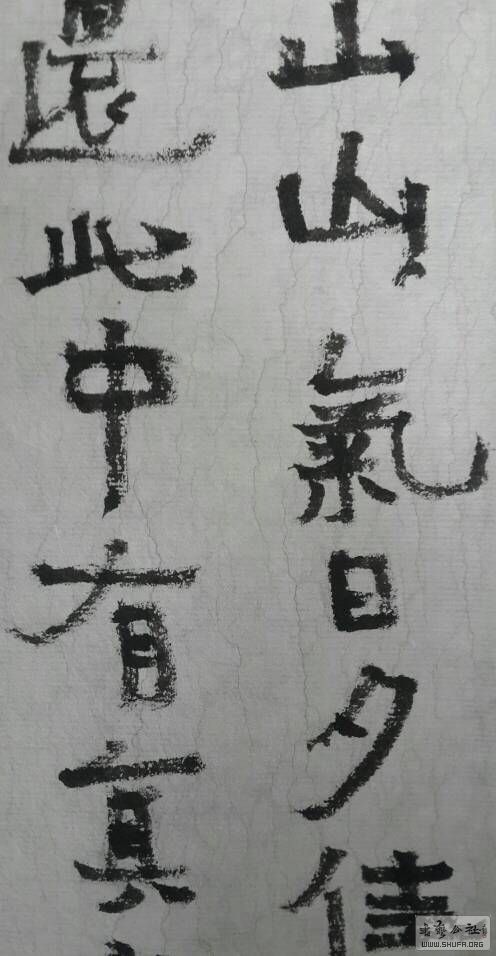 山山氣日夕佳
還此中有真
书艺公社
WWW.SHUFA.ORG